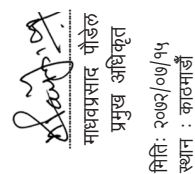 माधवप्रसाद पौडेल
प्रमुख अधिकृत
मिति: २०७२/०७/१५
स्थान : काठमाडौँ